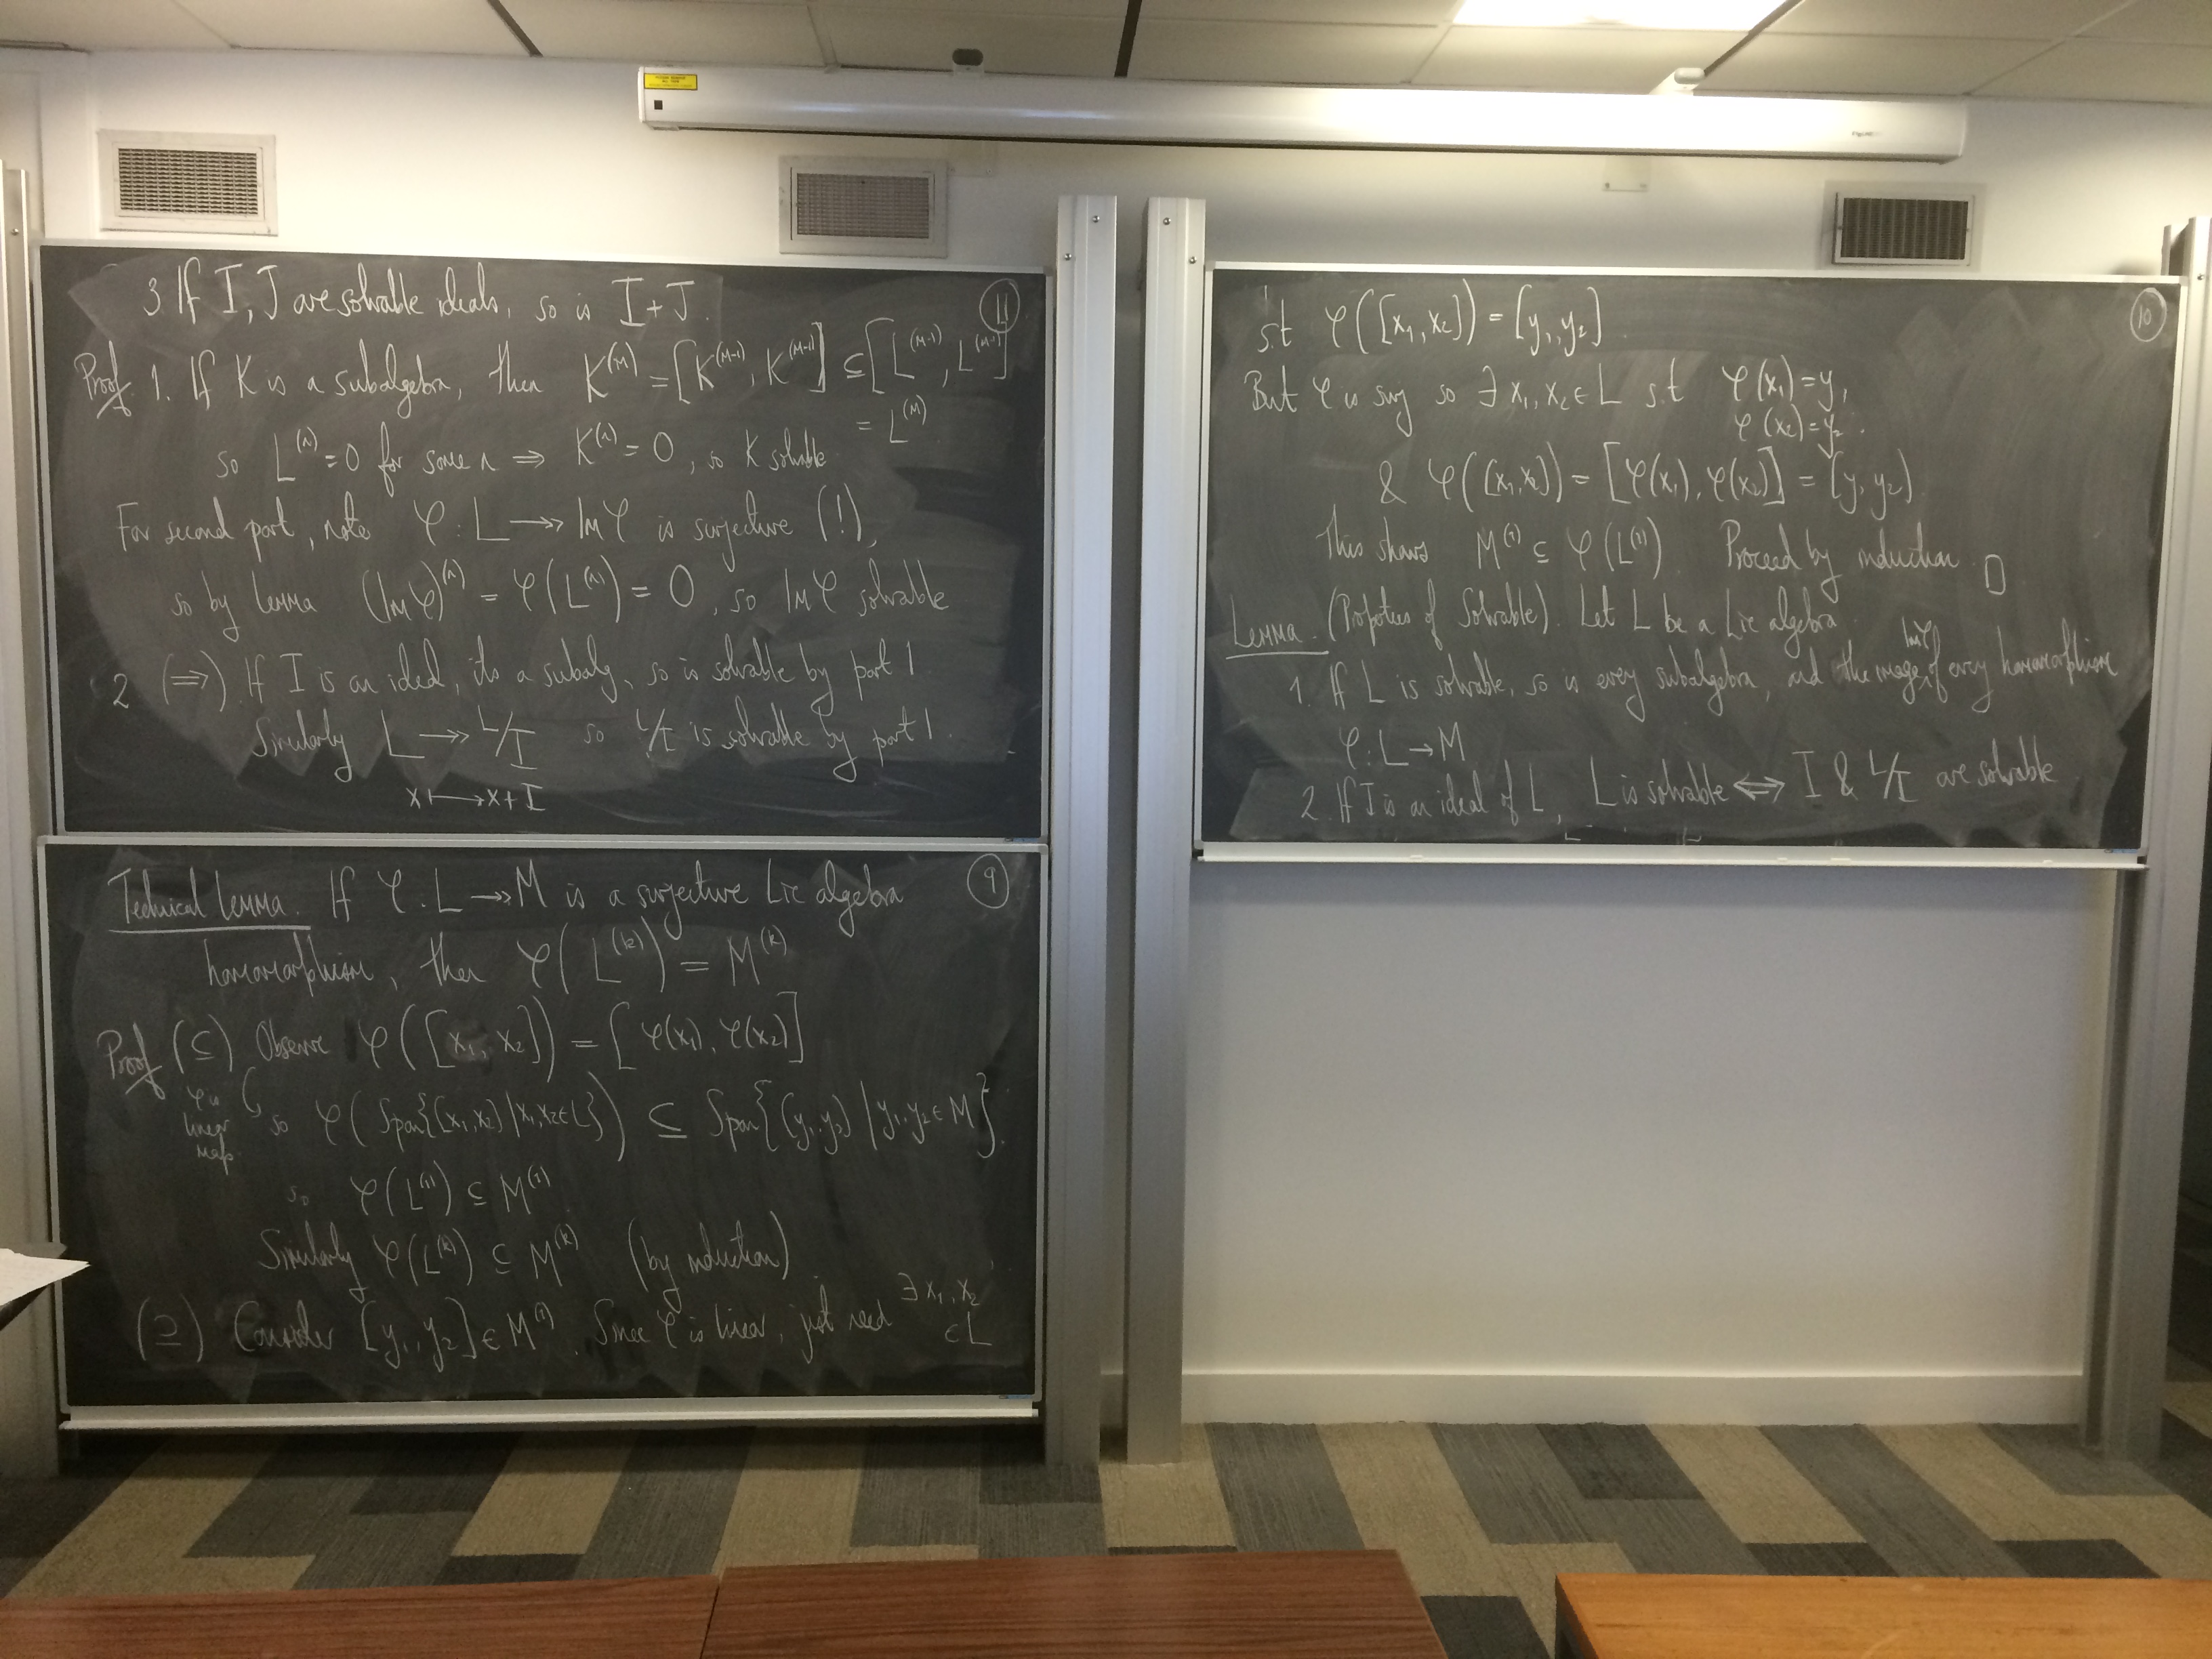 3. If I, J are solvable ideals, so is I + J.
11
Proof 1. If K is a subalgebra, then K^(m) = [K^(m-1), K^(m-1)] ⊆ [L^(m-1), L^(m-1)]
= L^(m)
so L^(n) = 0 for some n ⇒ K^(n) = 0, so K solvable
For second part, note φ : L ↠ Im φ is surjective (!),
so by lemma (Im φ)^(n) = φ(L^(n)) = 0, so Im φ solvable
2 (⇒). If I is an ideal, its a subalg, so is solvable by part 1.
Similarly L ↠ L/I so L/I is solvable by part 1.
x ↦ x + I
Technical Lemma. If φ : L ↠ M is a surjective Lie algebra
9
homomorphism, then φ(L^(k)) = M^(k)
Proof (⊆) Observe φ([x₁, x₂]) = [φ(x₁), φ(x₂)]
φ is
linear
map.
so φ(Span{[x₁,x₂] | x₁,x₂∈L}) ⊆ Span{[y₁,y₂] | y₁,y₂∈M}.
so φ(L^(1)) ⊆ M^(1)
Similarly φ(L^(k)) ⊆ M^(k) (by induction)
(⊇) Consider [y₁, y₂] ∈ M^(1). Since φ is linear, just need ∃ x₁, x₂
∈ L
10
s.t φ([x₁, x₂]) = [y₁, y₂].
But φ is surj so ∃ x₁, x₂ ∈ L s.t φ(x₁) = y₁
φ(x₂) = y₂.
& φ([x₁,x₂]) = [φ(x₁), φ(x₂)] = [y₁, y₂]
This shows M^(1) ⊆ φ(L^(1)). Proceed by induction. □
Lemma. (Properties of Solvable). Let L be a Lie algebra.
1. If L is solvable, so is every subalgebra, and the image Im φ of every homomorphism
φ : L → M
2. If I is an ideal of L, L is solvable ⇔ I & L/I are solvable